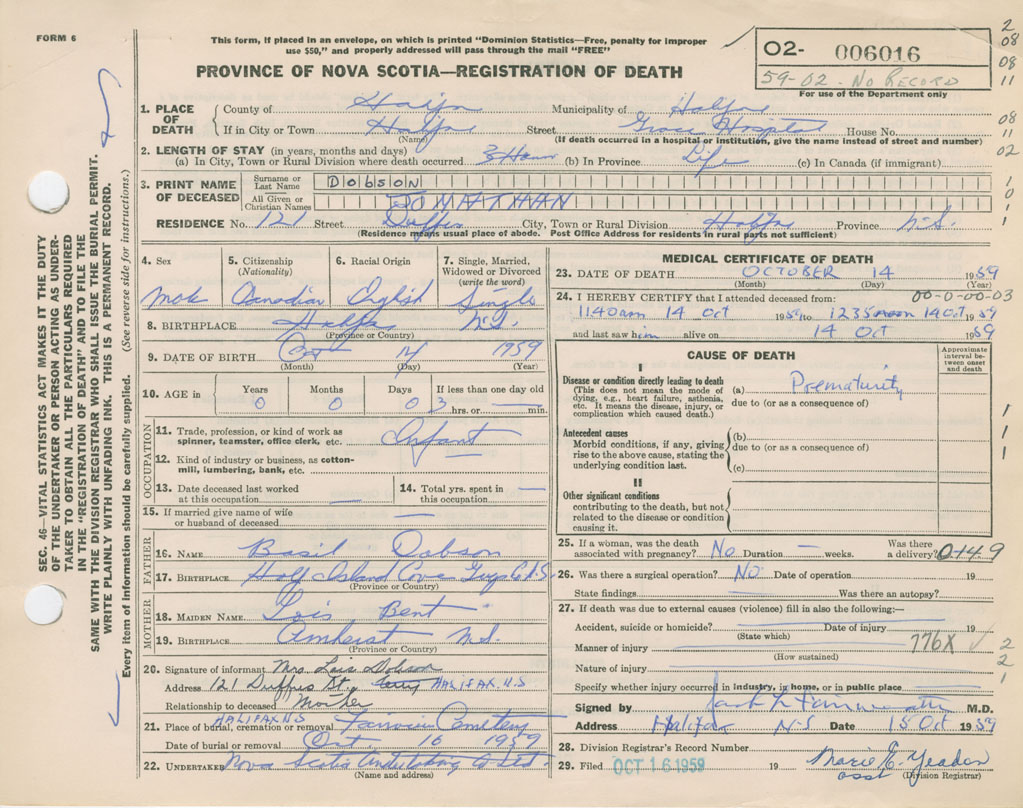 FORM 6
This form, if placed in an envelope, on which is printed "Dominion Statistics—Free, penalty for improper
use $50," and properly addressed will pass through the mail "FREE"
PROVINCE OF NOVA SCOTIA—REGISTRATION OF DEATH
02- 006016
59-02 - No Record
For use of the Department only
2
08
08
11
08
11
02
SEC. 46—VITAL STATISTICS ACT MAKES IT THE DUTY
OF THE UNDERTAKER OR PERSON ACTING AS UNDER-
TAKER TO OBTAIN ALL THE PARTICULARS REQUIRED
IN THE "REGISTRATION OF DEATH" AND TO FILE THE
SAME WITH THE DIVISION REGISTRAR WHO SHALL ISSUE THE BURIAL PERMIT.
WRITE PLAINLY WITH UNFADING INK. THIS IS A PERMANENT RECORD.
Every item of information should be carefully supplied. (See reverse side for instructions.)
1. PLACE OF DEATH
County of Halifax Municipality of Halifax
If in City or Town Halifax Street Grace Hospital House No.
(Name) (If death occurred in a hospital or institution, give the name instead of street and number)
2. LENGTH OF STAY (in years, months and days)
(a) In City, Town or Rural Division where death occurred 3 Hours (b) In Province Life (c) In Canada (if immigrant)
3. PRINT NAME OF DECEASED
Surname or Last Name DOBSON
All Given or Christian Names JONATHAN
RESIDENCE No. 121 Street Duffus City, Town or Rural Division Halifax Province N.S.
(Residence means usual place of abode. Post Office Address for residents in rural parts not sufficient)
4. Sex 5. Citizenship (Nationality) 6. Racial Origin 7. Single, Married, Widowed or Divorced (write the word)
Male Canadian English Single
8. BIRTHPLACE Halifax N.S.
(Province or Country)
9. DATE OF BIRTH Oct 14 1959
(Month) (Day) (Year)
10. AGE in Years Months Days If less than one day old
0 0 0 3 hrs. or min.
OCCUPATION
11. Trade, profession, or kind of work as spinner, teamster, office clerk, etc. Infant
12. Kind of industry or business, as cotton-mill, lumbering, bank, etc.
13. Date deceased last worked at this occupation
14. Total yrs. spent in this occupation
15. If married give name of wife or husband of deceased
FATHER
16. NAME Basil Dobson
17. BIRTHPLACE Half Island Cove Guys Co N.S.
(Province or Country)
MOTHER
18. MAIDEN NAME Lois Bent
19. BIRTHPLACE Amherst N.S.
(Province or Country)
20. Signature of informant Mrs. Lois Dobson
Address 121 Duffus St. HALIFAX. N.S
Relationship to deceased Mother
HALIFAX N.S
21. Place of burial, cremation or removal Fairview Cemetery
Date of burial or removal Oct 16 1959
22. UNDERTAKER Nova Scotia Undertaking Co Ltd
(Name and address)
MEDICAL CERTIFICATE OF DEATH
23. DATE OF DEATH OCTOBER 14 1959
(Month) (Day) (Year)
24. I HEREBY CERTIFY that I attended deceased from: 00-0-00-03
1140am 14 Oct 1959 to 1235 noon 14 Oct 1959
and last saw him alive on 14 Oct 1959
CAUSE OF DEATH
Approximate interval between onset and death
I
Disease or condition directly leading to death
(This does not mean the mode of dying, e.g., heart failure, asthenia, etc. It means the disease, injury, or complication which caused death.)
(a) Prematurity
due to (or as a consequence of)
Antecedent causes
Morbid conditions, if any, giving rise to the above cause, stating the underlying condition last.
(b)
due to (or as a consequence of)
(c)
II
Other significant conditions
contributing to the death, but not related to the disease or condition causing it.
25. If a woman, was the death associated with pregnancy? No Duration weeks. Was there a delivery? 0149
26. Was there a surgical operation? NO Date of operation 19
State findings Was there an autopsy?
27. If death was due to external causes (violence) fill in also the following:—
Accident, suicide or homicide? Date of injury 19
(State which)
Manner of injury 776X
(How sustained)
Nature of injury
Specify whether injury occurred in industry, in home, or in public place
Signed by M.D.
Address Halifax N-S Date 15 Oct 1959
28. Division Registrar's Record Number
29. Filed OCT 16 1959 19 Marie E. Yeadon
asst (Division Registrar)